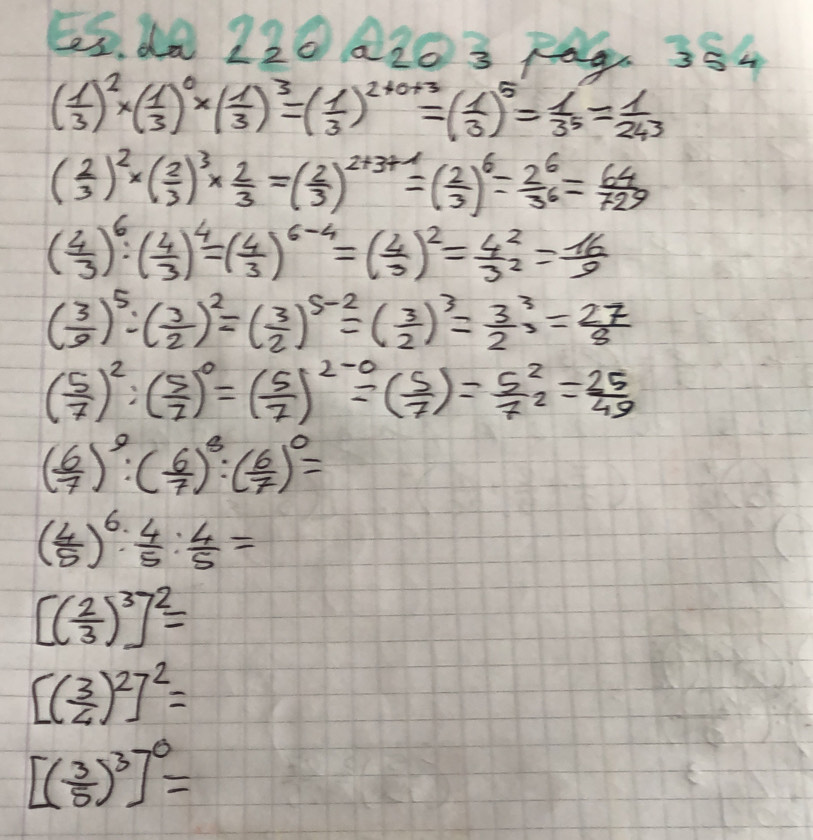 Es. da 220 a 203 pag. 354
(1/3)² × (1/3)⁰ × (1/3)³ = (1/3)²⁺⁰⁺³ = (1/3)⁵ = 1/3⁵ = 1/243
(2/3)² × (2/3)³ × 2/3 = (2/3)²⁺³⁺¹ = (2/3)⁶ = 2⁶/3⁶ = 64/729
(4/3)⁶ : (4/3)⁴ = (4/3)⁶⁻⁴ = (4/3)² = 4²/3² = 16/9
(3/9)⁵ : (3/2)² = (3/2)⁵⁻² = (3/2)³ = 3³/2³ = 27/8
(5/7)² : (5/7)⁰ = (5/7)²⁻⁰ = (5/7) = 5²/7² = 25/49
(6/7)⁹ : (6/7)⁸ : (6/7)⁰ =
(4/5)⁶ : 4/5 : 4/5 =
[(2/3)³]² =
[(3/4)²]² =
[(3/5)³]⁰ =